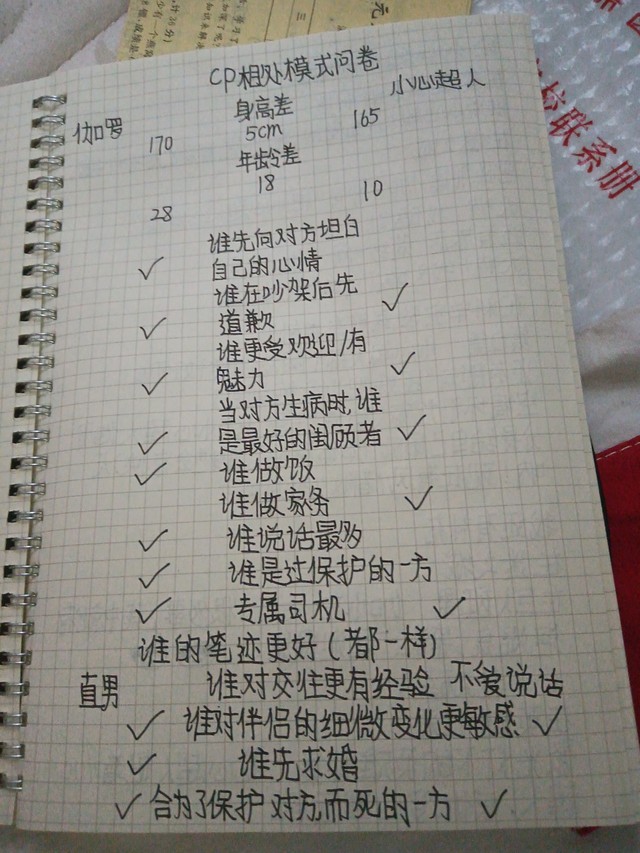 CP相处模式问卷
伽罗 身高差 小心超人
170 5cm 165
年龄差
28 18 10
谁先向对方坦白
✓ 自己的心情
谁在吵架后先 ✓
✓ 道歉
谁更受欢迎/有
✓ 魅力 ✓
当对方生病时,谁
✓ 是最好的照顾者 ✓
✓ 谁做饭
谁做家务 ✓
✓ 谁说话最多
✓ 谁是过保护的一方
✓ 专属司机 ✓
谁的笔迹更好(都一样)
直男 谁对交往更有经验 不爱说话
✓ 谁对伴侣的细微变化更敏感 ✓
✓ 谁先求婚
✓ 会为了保护对方而死的一方 ✓
元
三
联系册